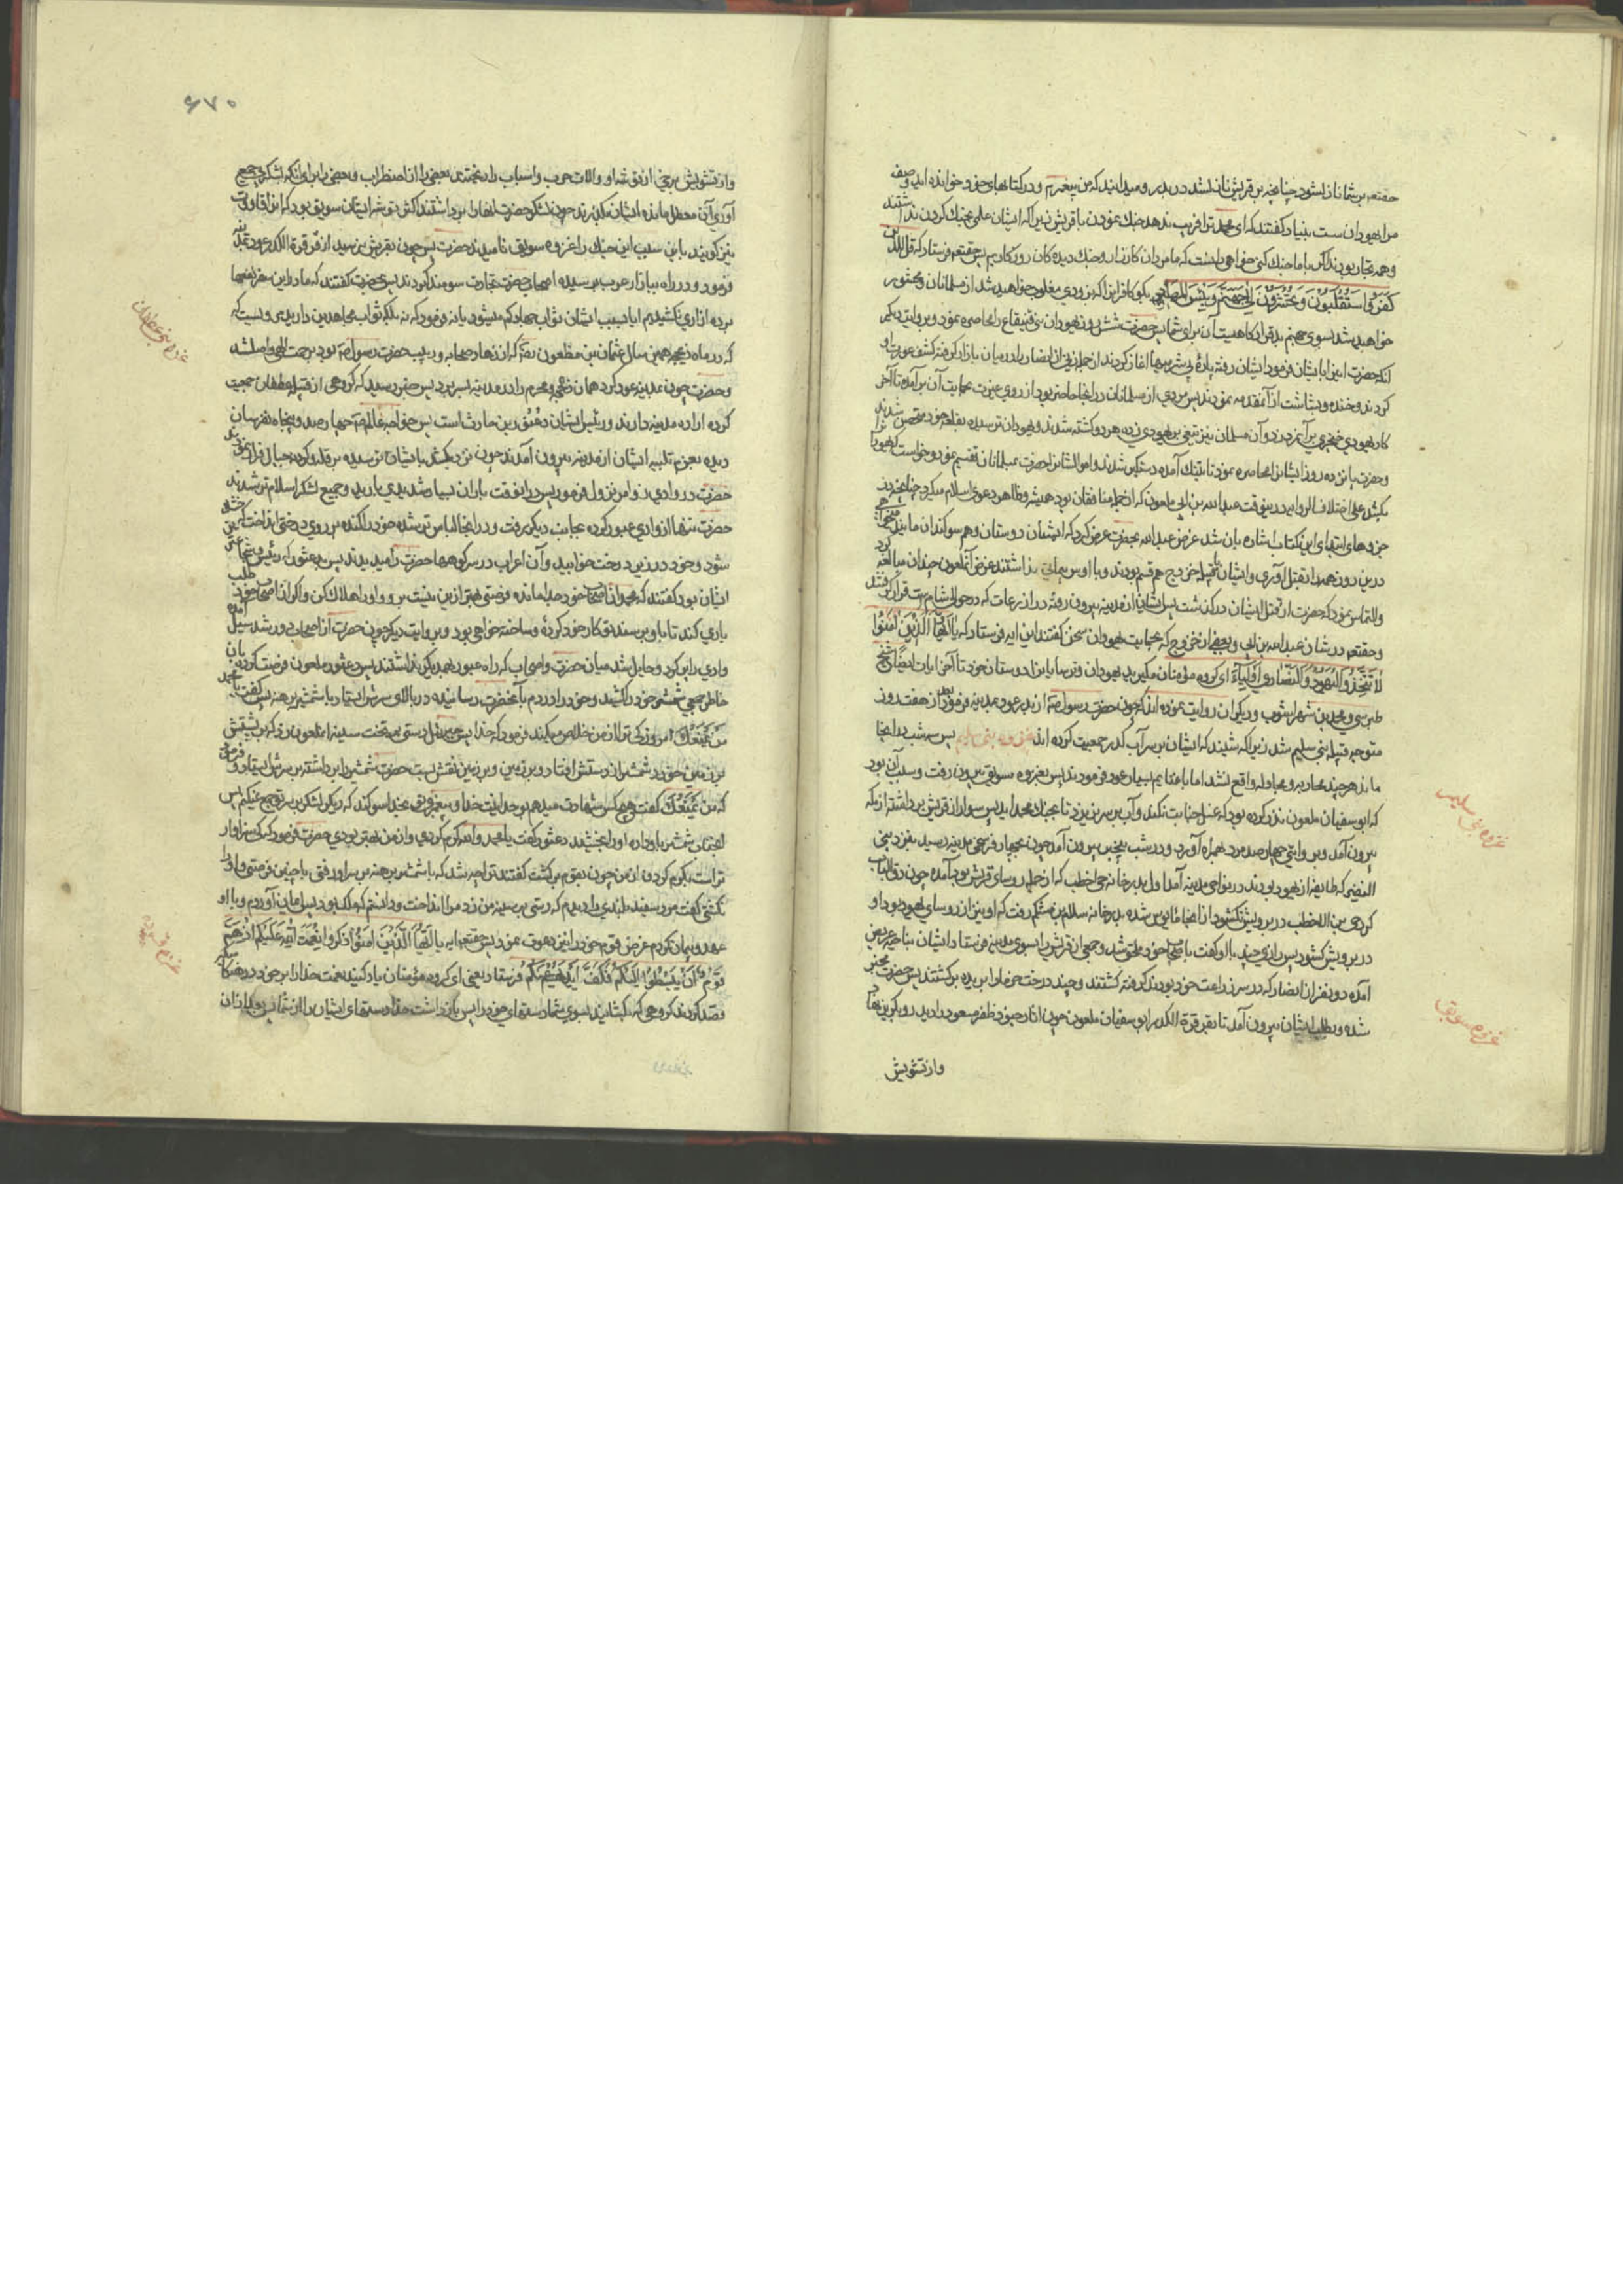 حقتعم بر شما نازل شود چنانچه بر قریش نازل شد در بدر و میدانید که من پیغمبرم و در کتابهای خود خوانده اید وصف
مرا یهودان سست بنیاد گفتند که ای محمد ترا فریب ندهد جنك نمودن با قریش زیرا که ایشان علمی بجنك کردن نداشتند
و همه تجار بودند اگر با ما جنك کنی خواهی دانست که ما مردان کارزار و جنك دیده کان روزکاریم پس حقتعم فرستاد که قل للذین
کفروا ستغلبون و تحشرون الی جهنم و بئس المهاد یعنی بکو کافران را که بزودی مغلوب خواهید شد از مسلمانان و محشور
خواهید شد بسوی جهنم بد قرارکاهیست آن برای شما پس حضرت شش روز یهودان بنی قینقاع را محاصره نمود و بروایت دیکر
کردند و خنده و بشاشت از آنمقدمه نمودند پس مردی از مسلمانان در انجا حاضر بود از روی غیرت بحمایت آن بر آمده تا آخر
کار یهودی خنجری بر آن مرد زد و آن مسلمان نیز تیغی بر یهودی زده هر دو کشته شدند و یهودان ترسیده بقلعه خود متحصن شدند
و حضرت پانزده روز ایشانرا محاصره نمود تا بتنك آمده دستکیر شدند و اموالشانرا حضرت بمسلمانان تقسیم نمود و خواست
بکشد علی اختلاف الروایه درینوقت عبد الله بن ابی ملعون که از جمله منافقان بود همیشه و ظاهر دعوی اسلام میکرد چنانچه در
جزوهای ابتدای این کتاب اشاره بان شد عرض عبد الله بحضرت عرض کرد که ایشان دوستان و هم سوکندان مایند
درین روز همه را بقتل آوری و ایشان با قبیله خزرج هم قسم بودند و با اوس پیمانی نداشتند غرض آنملعون چندان مبالغه کرد
و التماس نمود که حضرت از قتل ایشان در کذشت پس ایشان از مدینه بیرون رفته در اذرعات که در حوالی شام است قرار کرفتند
و حقتعم در شان عبد الله بن ابی و بعضی از خزرج که بحمایت یهودان سخن کفتند این ایه فرستاد که یا ایها الذین امنوا
لا تتخذوا الیهود و النصاری اولیاء ای کروه مؤمنان مکیرید یهودان و ترسایانرا دوستان خود تا آخر ایات ایضاً شیخ
طبرسی و محمد بن شهر اشوب و دیکران روایت نموده اند که چون حضرت رسول صم از بدر عود بمدینه فرمود بعد از هفت روز
متوجه قبیله بنی سلیم شد زیرا که شنید که ایشان بر سر آب کدر جمعیت کرده اند غزوه بنی سلیم پس سه شب در انجا
ماند هر چند محاربه و مجادله واقع نشد اما با غنایم بسیار عود فرمودند پس بغزوه سویق بیرون رفت و سبب آن بود
که ابو سفیان ملعون نذر کرده بود که غسل جنابت نکند و آب بر سر نریزد تا بجنك محمد اید پس سوار از قریش برداشته از مکه
بیرون آمد و بروایتی چهار صد مرد بهمراه آورد و در شب بیخبر بیرون آمد چون بچهار فرسخی مدینه رسید بنزد بنی
النضیر که طایفه از یهود بودند در نواحی مدینه آمد اول بدر خانه حی اخطب که از جمله روسای قریش بود آمده چون دق الباب
کرد حی بن الاخطب در برویش نکشود از انجا مأیوس شده بدر خانه سلام بن مشکم رفت که او نیز از روسای یهود بود او
در برویش کشود پس رازی چند با او کفت باصحاب خود ملحق شد و جمعی از قریش را بسوی مدینه فرستاد و ایشان بناحیه عریض
آمده دو نفر از انصار که در سر زراعت خود بودند کرفته کشتند و چند درخت خرما را بریده برکشتند پس حضرت مخبر
شده و بطلب ایشان بیرون آمد تا بقرقرة الکدر ابو سفیان ملعون چون اثار جنود ظفر مسعود را دید رو بکریز نهاد
وازتشویش
غزوه بنی سلیم
غزوه سویق
۶۷۰
وازتشویش برخی از توشه او والات حرب و اسباب را ریختند بعضی را از اضطراب و بعضی را برای انکه لشکر بجمع
آوری آن معطل مانده ایشان بکریزند چون لشکر حضرت انها را برداشتند اکثر توشه ایشان سویق بود که انرا قاووت
نیز کویند باین سبب این جنك را غزوه سویق نامیدند حضرت پس چون بقریش نرسید از قرقرة الکدر عود بمدینه
فرمود و در راه ببازار عرب رسیده اصحاب حضرت تجارت سومند کردند پس بحضرت کفتند که ما در این سفر نفعها
برده ازاری نکشیدیم ایا بسبب ایشان ثواب جهاد کم میشود یا نه فرمود که نه بلکه ثواب مجاهدین دارید
که در ماه ذیحجه همین سال عثمان بن مظعون که از زهاد صحابه و ربیب حضرت رسول صم بود برحمت الهی واصل شد
و حضرت چون بمدینه عود کرد همان ذیحجه و محرم را در مدینه بسر برد پس خبر رسید که کروهی از قبیله غطفان جمعیت
کرده اراده مدینه دارند و رئیس ایشان دعثور بن حارث است پس خواجه عالم صم چهار صد و پنجاه نفر سان
دیده بعزم تنبیه ایشان از مدینه بیرون آمدند چون نزدیک شد بایشان ترسیده بر قله کوه و جبال فرار نمودند
حضرت در وادی ذو امر نزول فرمود پس در انوقت باران بسیار شدیدی بارید و جمیع لشکر اسلام تر شدند
حضرت تنها از وادی عبور کرده بجانب دیکر رفت و در انجا لباس تر شده خود را کنده بر روی درختی انداخت که خشک
شود و خود در زیر درخت خوابید و آن اعراب در سر کوهها حضرت را میدیدند پس بدعثور که رئیس و شجاعترین
ایشان بود کفتند که محمد از اصحاب خود جدا مانده فرصتی بهتر ازین نیست برو و او را هلاك کن و اکر از اصحاب خود طلب
یاری کند تا باو برسند تو کار خود کرده و ساخته خواهی بود و بروایت دیکر چون حضرت از اصحاب دور شد سیل آمده
وادی را پر کرد و حایل شد میان حضرت و اصحاب که راه عبور بهمدیکر نداشتند پس دعثور ملعون فرصت کرده بان
خاطر جمعی شمشیر خود را کشید و خود را دردم بآنحضرت رسانیده در بالای سرش ایستاد با شمشیر برهنه پس کفت یا محمد
من یمنعك امروز کی ترا از من خلاص میکند فرمود که خدا پس جبرئیل دستی بر تخت سینه انملعون زد که بر پشتش
بر زمین خورد شمشیر از دستش افتاد و بر زمین نقش بست حضرت شمشیر را برداشته بر سرش ایستاد و فرمود
که من یمنعك کفت هیچکس شهادت میدهم بوحدانیت خدا و پیغمبری تو بخدا سوکند که دیکر لشکر بر سر تو جمع نمیکنم پس
انجناب شمشیر باو داده او را بخشید دعثور کفت یا محمد والله کرم کردی و از من بهتر بودی حضرت فرمود که کی سزاوار
تر است بکرم کردن از من چون بقوم برکشت کفتند ترا چه شد که با شمشیر برهنه بر سر او رفتی با چنین فرصتی او را
نکشتی کفت مرد سفید بلندی را دیدم که دستی بر سینه من زد مرا انداخت و دانستم که ملك بود پس ایمان آوردم و با او
عهد و پیمان کردم غرض قوم خود را نیز دعوت نمود پس حقتعم ایه یا ایها الذین امنوا اذکروا نعمت الله علیکم اذ هم
قوم ان یبسطوا الیکم فکف ایدیهم عنکم فرستاد یعنی ای کروه مؤمنان یاد کنید نعمت خدا را بر خود در هنکامیکه
قصد کردند کروهی که بکشانند بسوی شما دستهای خود را پس باز داشت خدا دستهای ایشان را از شما
غزوه بنی غطفان